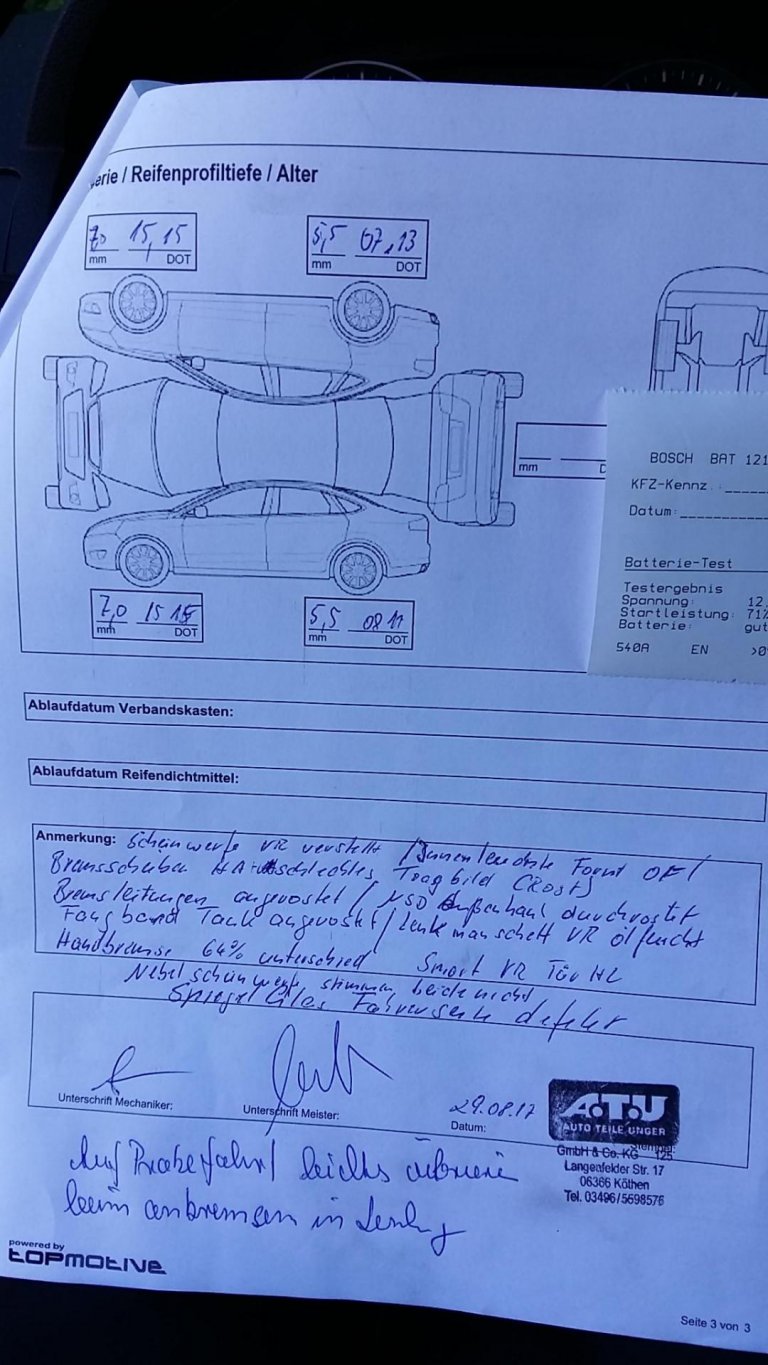 erie / Reifenprofiltiefe / Alter
7,0 15,15
mm DOT
5,5 07,13
mm DOT
mm D
BOSCH BAT 121
KFZ-Kennz.:
Datum:
Batterie-Test
Testergebnis
Spannung: 12,
Startleistung: 71%
Batterie: gut
540A EN >0
7,0 15 15
mm DOT
5,5 08 11
mm DOT
Ablaufdatum Verbandskasten:
Ablaufdatum Reifendichtmittel:
Anmerkung: Scheinwerfe VR verstellt / Innenleuchte
Bremsscheiben HA schlechtes Tragbild (Rost)
Bremsleitungen angerostet / NSD durchrostet
Fangband Tank angerostet / Lenkmanschett VR ölfeucht
Handbremse 64% unterschied VR Tür
Nebelscheinwerfe stimmen beide nicht
Spiegel defekt
Unterschrift Mechaniker:
Unterschrift Meister:
29.08.17
Datum:
A.T.U
AUTO TEILE UNGER
Stempel:
GmbH & Co. KG 125
Langenfelder Str. 17
06366 Köthen
Tel. 03496/5698576
Auf Probefahrt leichtes
beim anbremsen in
powered by
topmotive
Seite 3 von 3